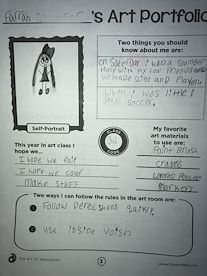 Farrah 's Art Portfolio
Two things you should
know about me are:
on Saterday i was a
with my four Friends and
we made slime and played
When i was little i
soccer.
Self-Portrait
This year in art class I
hope we...
I hope we pait
I hope we color
make stuff
My favorite
art materials
to use are:
Paint Brush
crayons
colored Pencles
markers
Two ways I can follow the rules in the art room are:
Follow derecshens quikly.
use inside voises
the art of education
2